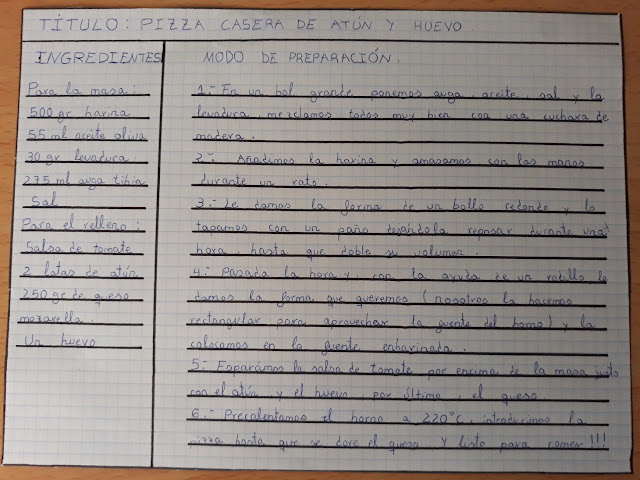 TÍTULO: PIZZA CASERA DE ATÚN Y HUEVO.
INGREDIENTES
Para la masa:
500 gr harina
55 ml aceite oliva
30 gr levadura
275 ml auga tibia
Sal
Para el relleno:
Salsa de tomate
2 latas de atún
250 gr de queso
mozarella.
Un huevo
MODO DE PREPARACIÓN.
1.- En un bol grande ponemos auga, aceite, sal y la
levadura, mezclamos todos muy bien con una cuchara de
madera.
2.- Añadimos la harina y amasamos con las manos
durante un rato.
3.- Le damos la forma de un bollo redondo y lo
tapamos con un paño dejándola reposar durante una
hora hasta que doble su volumen.
4.- Pasada la hora y, con la ayuda de un rodillo le
damos la forma que queremos (nosotros la hacemos
rectangular para aprovechar la fuente del horno) y la
colocamos en la fuente enharinada.
5.- Esparcimos la salsa de tomate por encima de la masa justo
con el atún y el huevo, por último, el queso.
6.- Precalentamos el horno a 220°C, introducimos la
pizza hasta que se dore el queso. Y listo para comer!!!